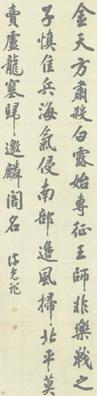 金天方肅殺白露始專征王師非樂戰之
子慎佳兵海氣侵南部邊風掃北平莫
賣盧龍塞歸邀麟閣名